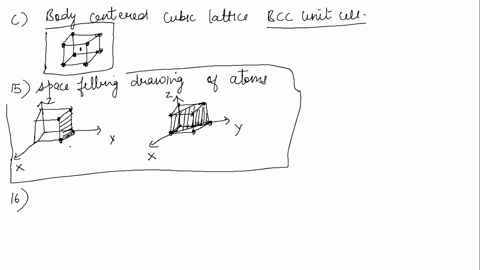 c) Body centered cubic lattice BCC unit cell-
15) space filling drawing of atoms
Z
X
X
Z
Y
X
16)